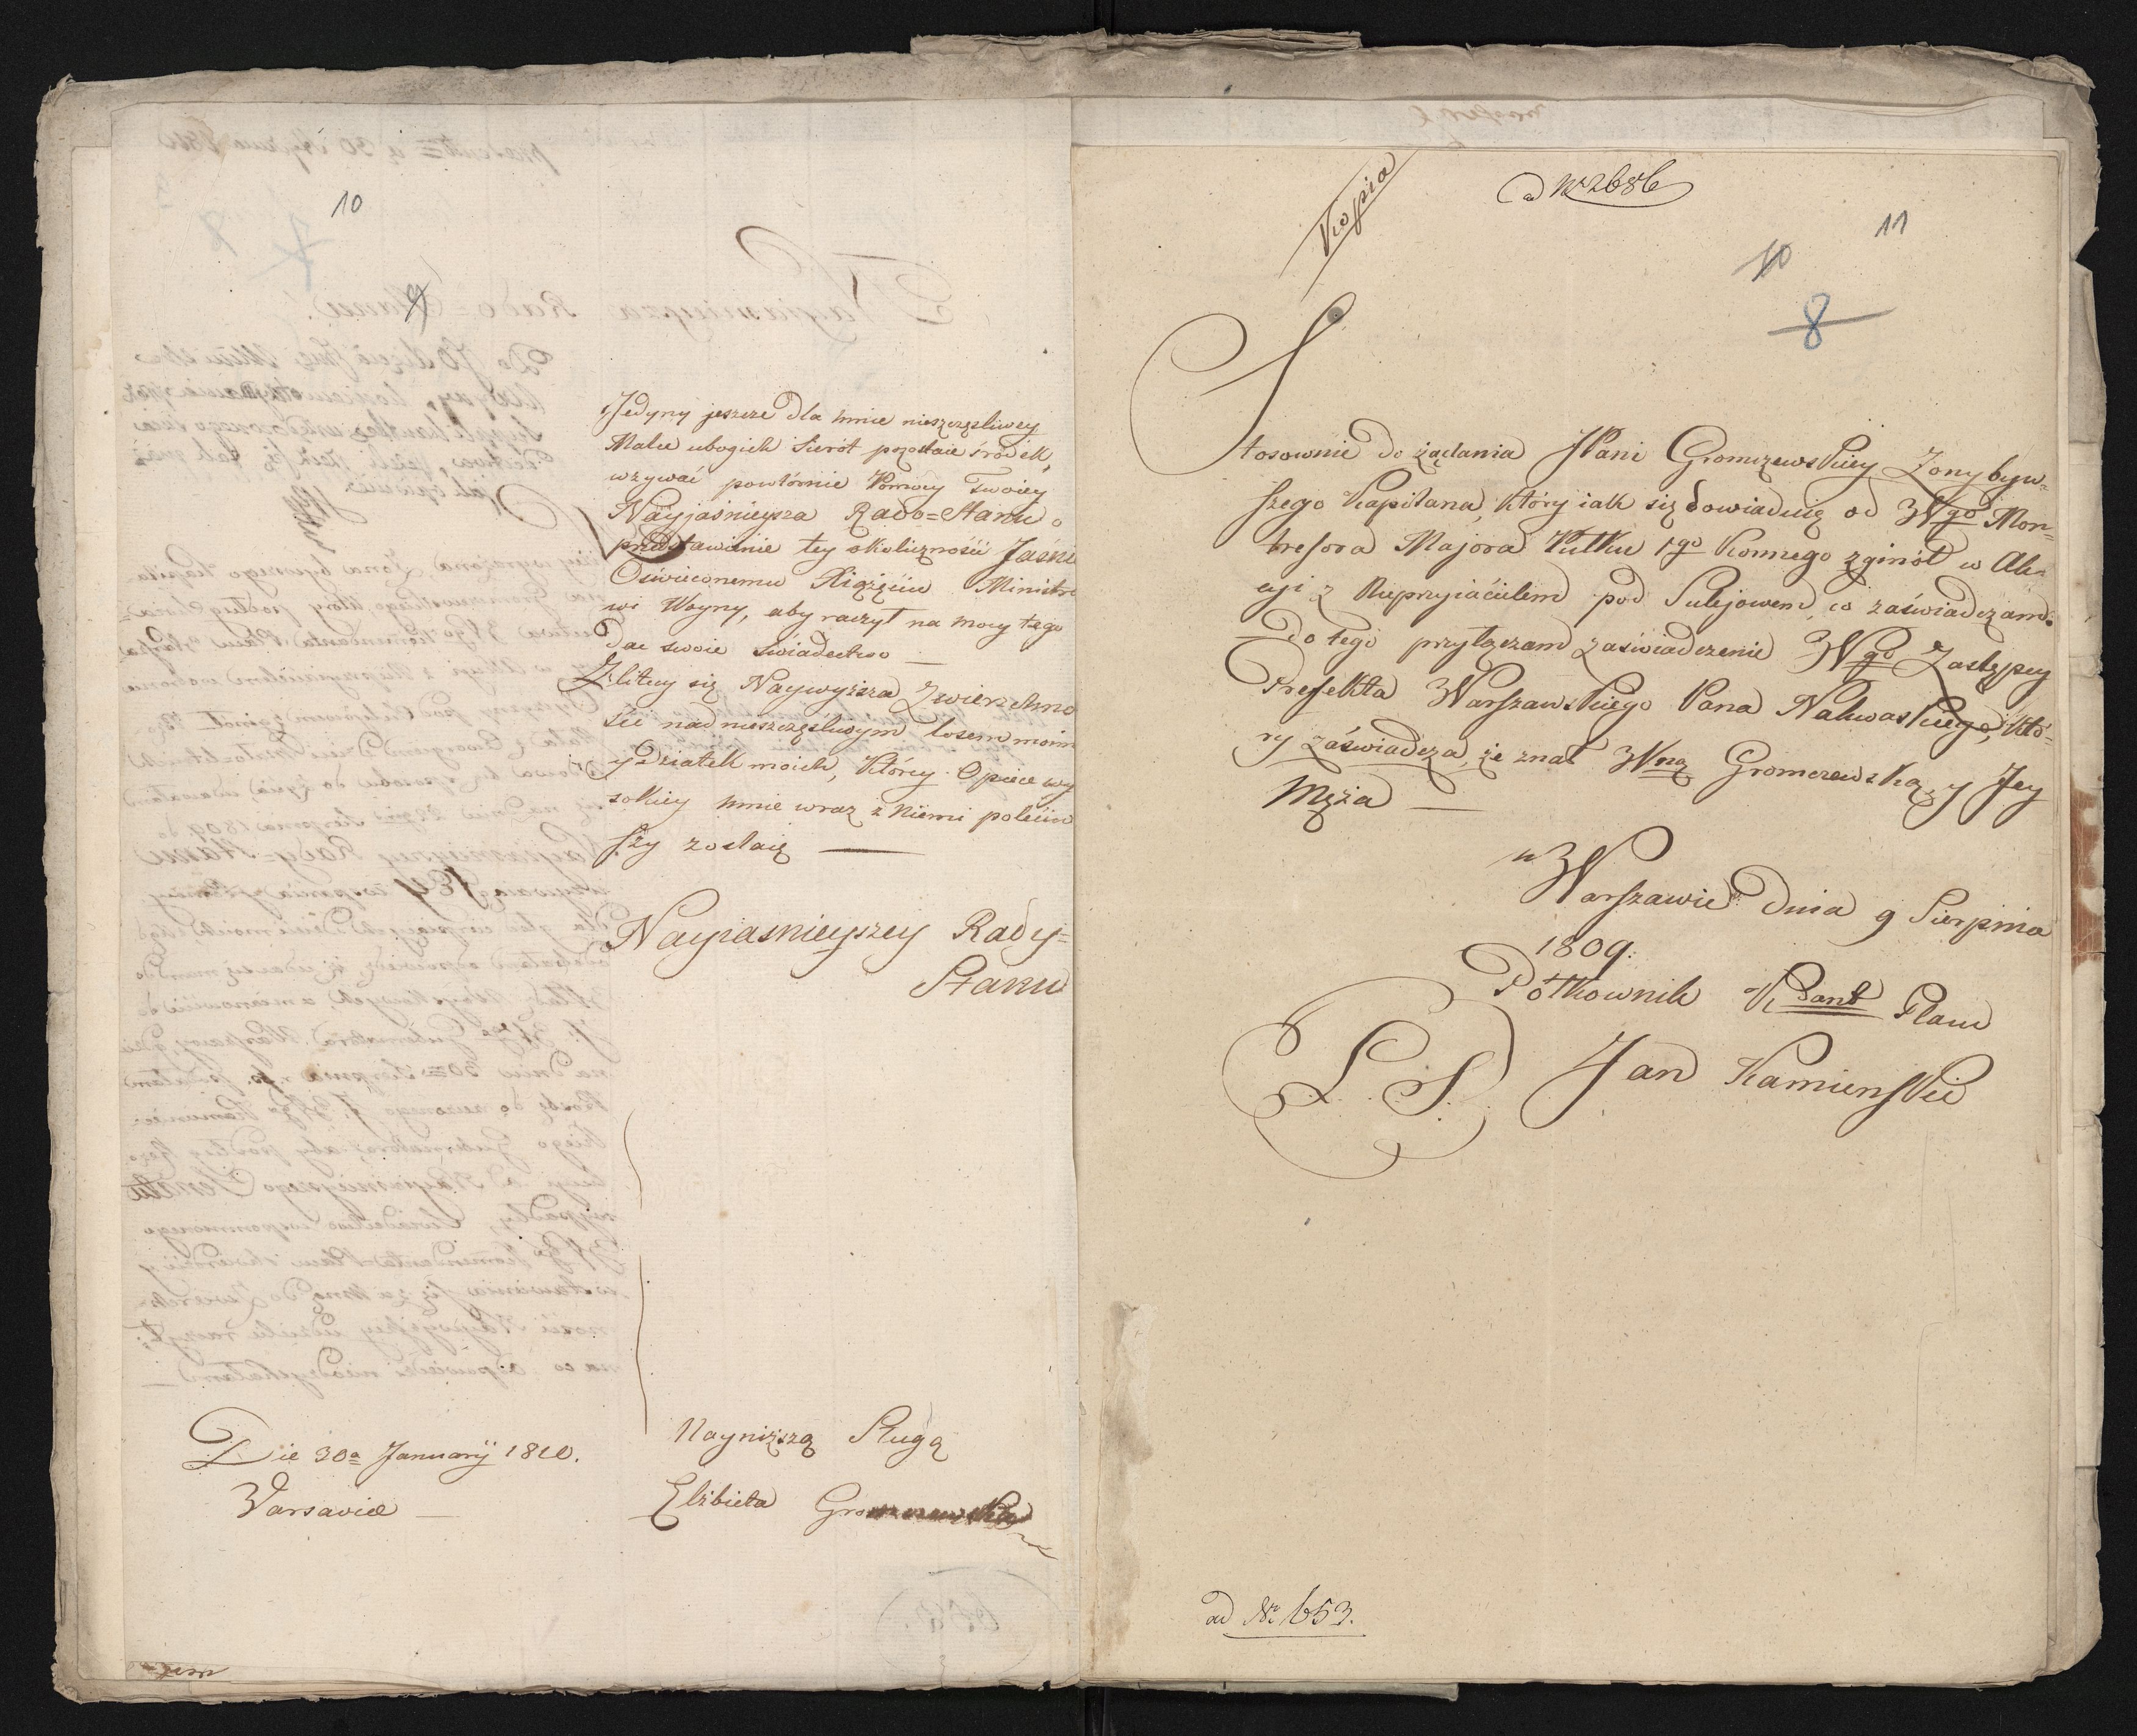 10
9
Jedyny jeszcze dla mnie nieszczęśliwey
Matce ubogich Sierót pozostaie środek,
wzywać powtórnie Pomocy Twoiey
Nayjaśnieysza Rado=Stanu o
przedstawienie tey okoliczności Jaśnie
Oświeconemu Xiążęciu Ministro
wi Woyny, aby raczył na mocy tego
dać swoie świadectwo —
Zlituy się Naywyższa Zwierzchno
ści nad nieszczęśliwym losem moim
y Dziatek moich, Którey Opiece wy
sokiey mnie wraz z niemi poleciw
szy zostaię —
Nayiaśnieyszey Rady=
Stanu
Die 30a Januarij 1810.
Varsaviae —
Nayniższą Sługą
Elżbieta Gromczewska
Kopia
ad Nr 2686
11
10
8
Stosownie do żądania JPani Gromczewskiey Żony byw=
szego Kapitana, który iak się dowiaduię od Wgo Mon=
tresora Majora Pułku 1go Konnego zginół w Ak=
cyi z Nieprzyiacielem pod Sulejowem, co zaświadczam.
Do tego przyłączam zaświadczenie Wgo Zastępcy
Prefekta Warszawskiego Pana Nakwaskiego, Któ=
ry zaświadcza, że znał Wną Gromczewską, y Jey
Męża —
w Warszawie Dnia 9 Sierpnia
1809.
Półkownik Kdant Placu
L. S. Jan Kamienskii
ad Nr 653.